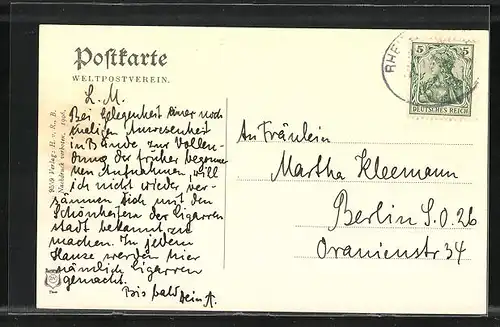 Postkarte
WELTPOSTVEREIN.
L. M.
Bei Gelegenheit einer noch
maligen Anwesenheit
in Bünde zur Vollen-
dung der früher begonne
nen Aufnahmen, will
ich nicht wieder ver-
säumen Dich mit den
Schönheiten der Cigarren
stadt bekannt zu
machen. In jedem
Hause werden hier
nämlich Cigarren
gemacht.
Bis bald Dein A.
Verlag: H. v. R., B.
Nachdruck verboten.
RHE
5 5
DEUTSCHES REICH
An Fräulein
Martha Kleemann
Berlin S.O. 26
Oranienstr 34